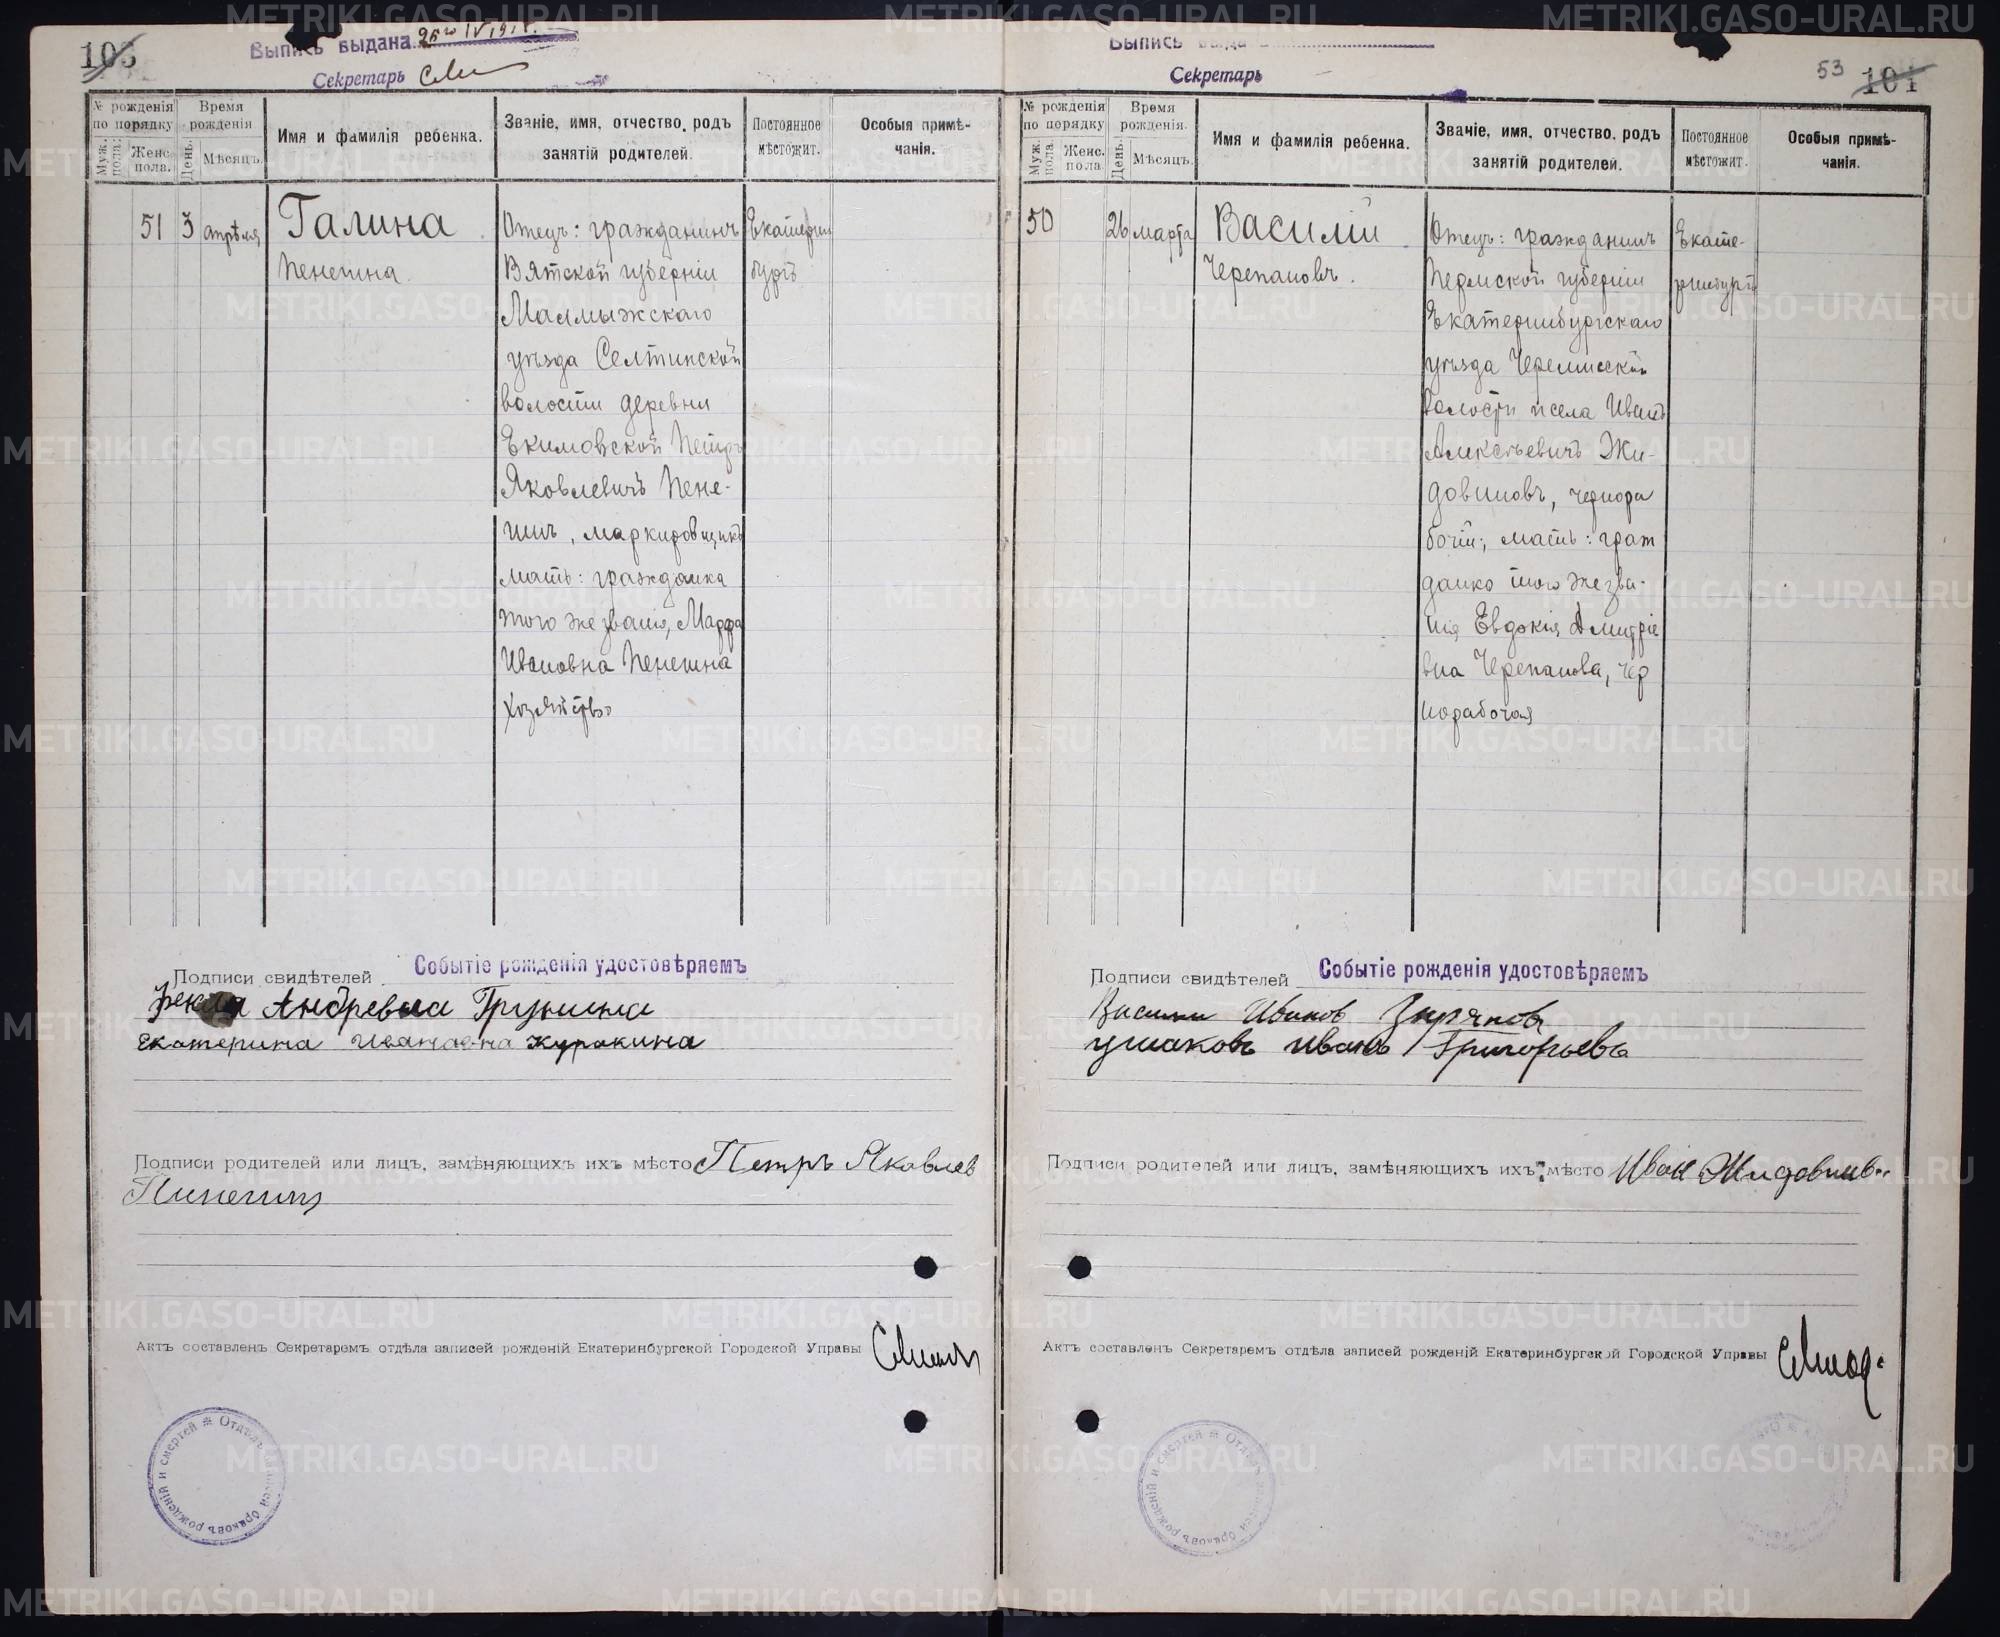 103
Выпись выдана 26го IV 191
Секретарь
№ рожденія по порядку
Муж. пола.
Женс. пола.
Время рожденія
День.
Мѣсяцъ.
Имя и фамилія ребенка.
Званіе, имя, отчество, родъ занятій родителей.
Постоянное мѣстожит.
Особыя примѣ-
чанія.
51
3
апрѣля
Галина
Пенегина.
Отецъ: гражданинъ
Вятской губерніи
Малмыжскаго
уѣзда Селтинской
волости деревни
Екимовской Петръ
Яковлевичъ Пене-
гинъ, маркировщикъ
мать: гражданка
того же званія, Марфа
Ивановна Пенегина
хозяйство
Екатерин
бургъ
Подписи свидѣтелей
Событіе рожденія удостовѣряемъ
Фекла Андревна Грунина
Екатерина Ивановна Куракина
Подписи родителей или лицъ, замѣняющихъ ихъ мѣсто Петръ Яковлев
Пинегинъ
Актъ составленъ Секретаремъ отдѣла записей рожденій Екатеринбургской Городской Управы
Отдѣлъ записей браковъ рожденій и смертей
Выпись выда
Секретарь
53
104
№ рожденія по порядку
Муж. пола.
Женс. пола
Время рожденія.
День.
Мѣсяцъ.
Имя и фамилія ребенка.
Званіе, имя, отчество, родъ занятій родителей.
Постоянное мѣстожит.
Особыя примѣ-
чанія.
50
26
марта
Василій
Черепановъ.
Отецъ: гражданинъ
Пермской губерніи
Екатеринбургскаго
уѣзда Черемисской
волости и села Иванъ
Алексѣевичъ Жи-
довиновъ, чернора
бочій; мать: граж
данка того же зва-
нія Евдокія Дмитріе
вна Черепанова, чер
норабочая
Екате-
ринбургъ
Подписи свидѣтелей
Событіе рожденія удостовѣряемъ
Василий Иванов Зыряновъ
Ушаковъ Иванъ Григорьевъ
Подписи родителей или лицъ, замѣняющихъ ихъ мѣсто Иван Жидовинов
Актъ составленъ Секретаремъ отдѣла записей рожденій Екатеринбургской Городской Управы
Отдѣлъ записей браковъ рожденій и смертей
METRIKI.GASO-URAL.RU